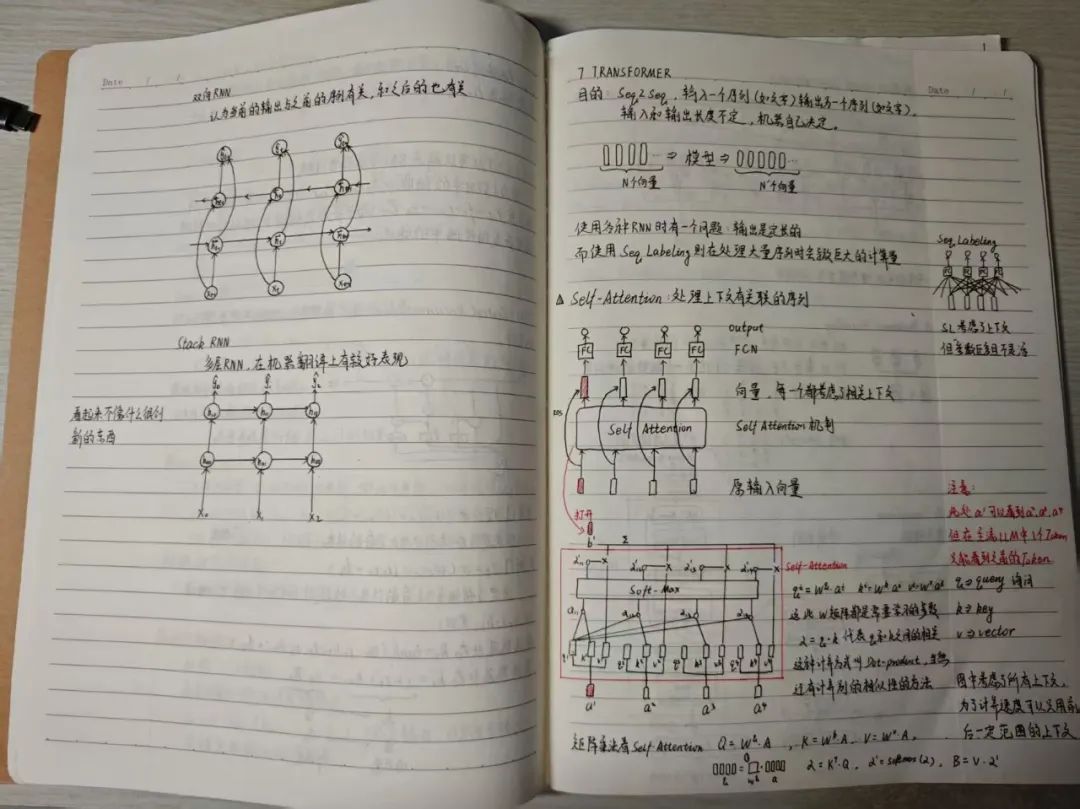 Date / /
双向RNN
认为当前的输出与之前的序列有关,和之后的也有关
Stack RNN
多层RNN,在机器翻译上有较好表现
看起来不像什么很创
新的东西
X₀ X₁ X₂
1
7 TRANSFORMER
Date / /
目的:Seq2Seq,输入一个序列(如文字)输出另一个序列(如文字),
输入和输出长度不定,机器自己决定。
⇒ 模型 ⇒
N个向量 N'个向量
使用多种RNN时有一个问题:输出是定长的
而使用Seq Labeling则在处理大量序列时会致巨大的计算量
Seq Labeling
FC FC FC FC
SL考虑了上下文
△ Self-Attention:处理上下文有关联的序列
output
FC FC FC FC FCN
向量,每一个都考虑了相关上下文
Self Attention Self Attention 机制
原输入向量
打开
b¹ Σ
Self-Attention
Soft-Max
q¹ k¹ v¹ q² k² v² q³ k³ v³ q⁴ k⁴ v⁴
a¹ a² a³ a⁴
注意:
此处a¹可以看到a²,a³,a⁴
但在主流LLM中1个Token
只能看到之前的Token
q ⇒ query 询问
k ⇒ key
v ⇒ vector
这些W矩阵都是需要学习的参数
α=q·k 代表q和k之间的相关
这种计算方式叫Dot-product,当然
还有计算别的相似性的方法
图中考虑了所有上下文,
为了计算速度可以只用前
后一定范围的上下文
矩阵乘法看Self-Attention Q=Wq·A, K=Wk·A, V=Wv·A,
α=Kᵀ·Q, α'=softmax(α), B=V·α'